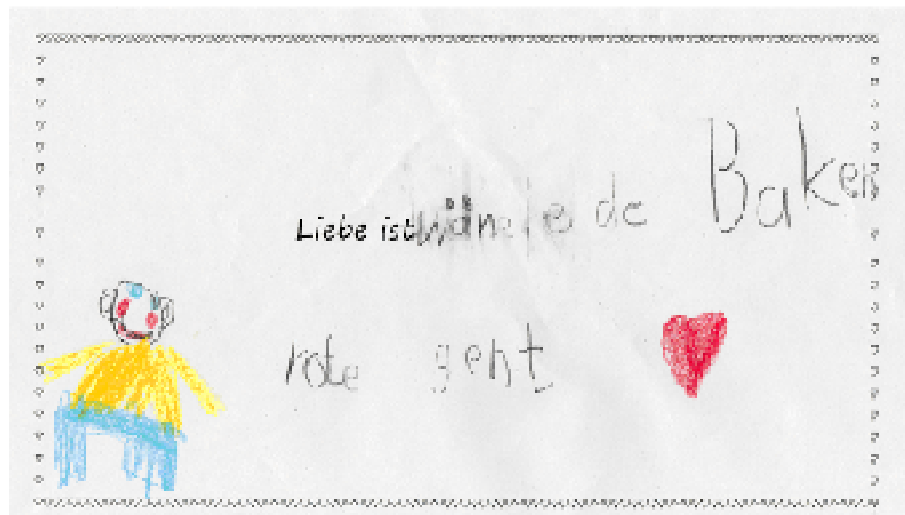 Liebe ist de Baken
rote geht